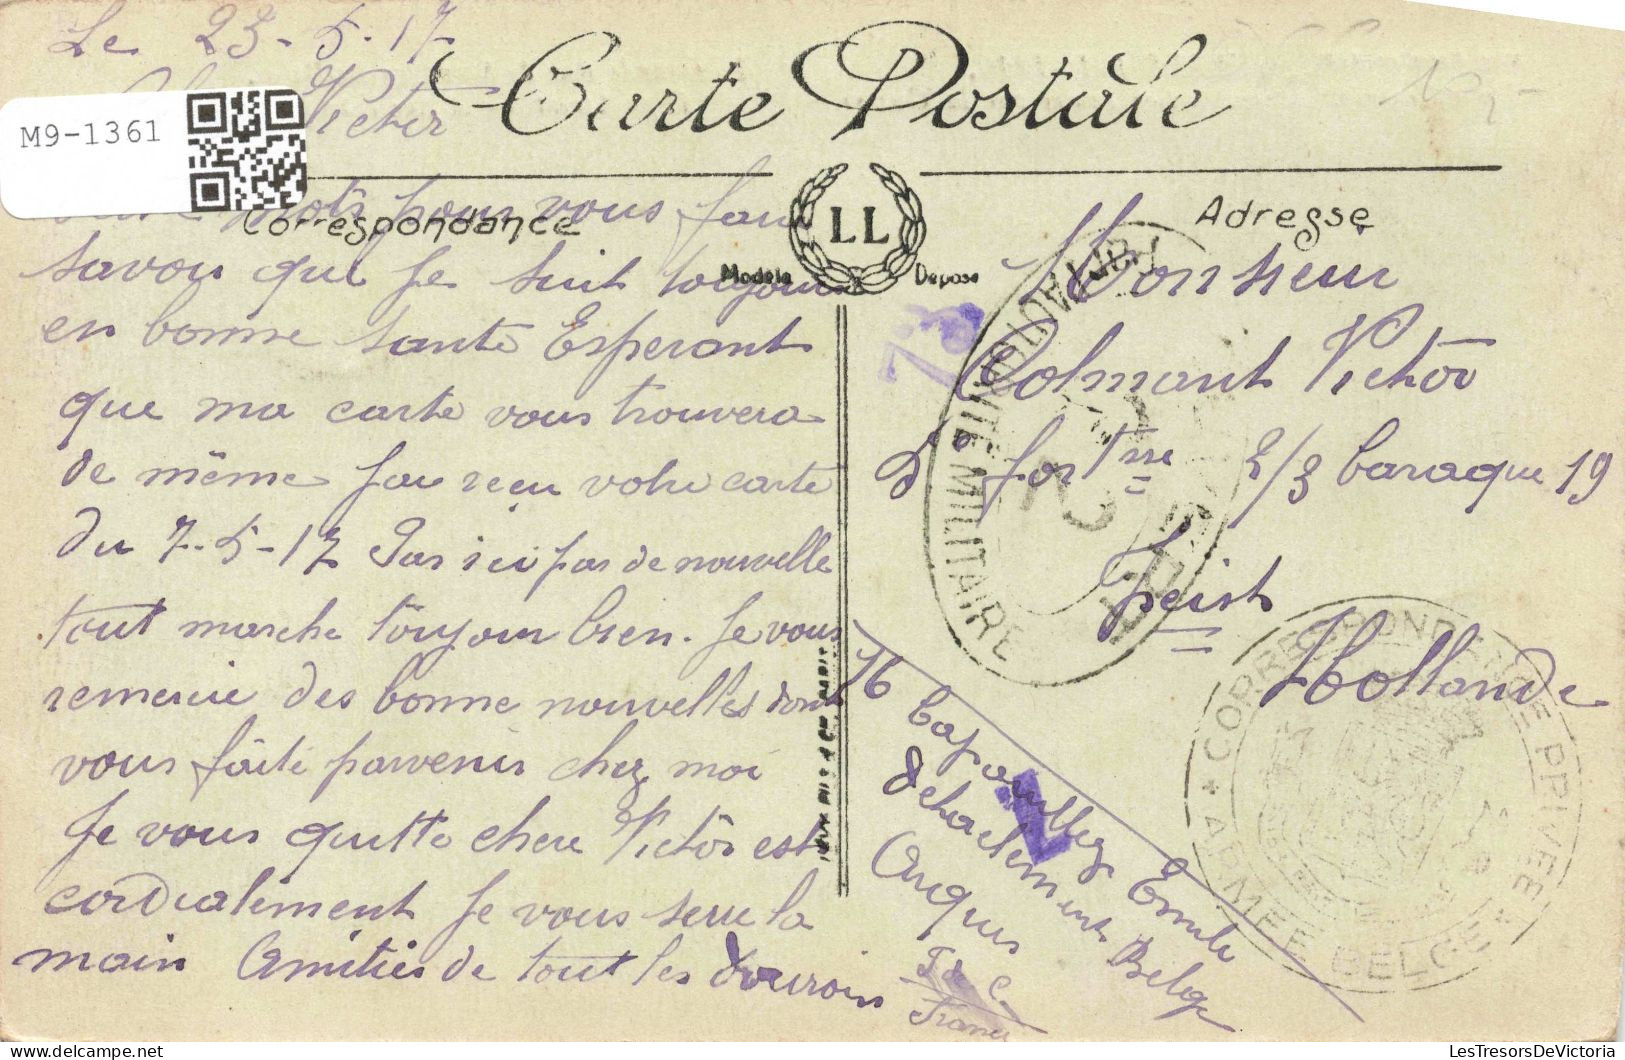 Le 23-5-17
Carte Postale
Victor
M9-1361
mots pour vous faire
Correspondance
LL
Modèle Déposé
Adresse
savoir que je suit toujour
en bonne santé Esperant
que ma carte vous trouvera
de même j'ai reçu votre carte
du 7-5-17 Par ici pas de nouvelle
tout marche toujour bien. Je vous
remercie des bonne nouvelles dont
vous faite parvenir chez moi
Je vous quitte cher Victor est
cordialement je vous serre la
main Amitiés de tout les
Monsieur
Colmant Victor
2/3 baraque 19
Zeist
Hollande
73
CONTROLE
MILITAIRE
CORRESPONDANCE PRIVEE
ARMEE BELGE
Emile
detachement Belge
P de C
France
LesTresorsDeVictoria.com